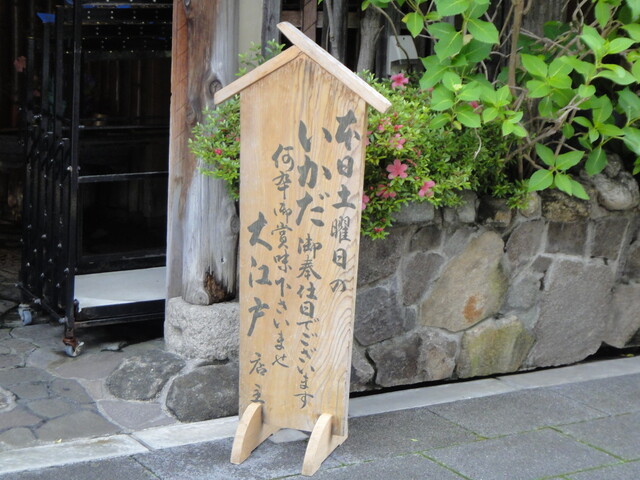 本日土曜日の
いかだ御奉仕日でございます
何卒御賞味下さいませ
大江戸 店主